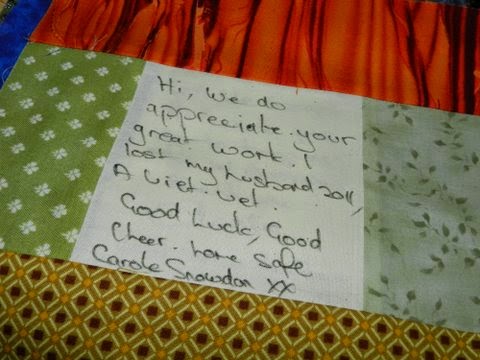 Hi, we do
appreciate your
great work. I
lost my husband 2011,
A Viet. Vet.
Good Luck, Good
Cheer. home safe
Carole Snowdon xx